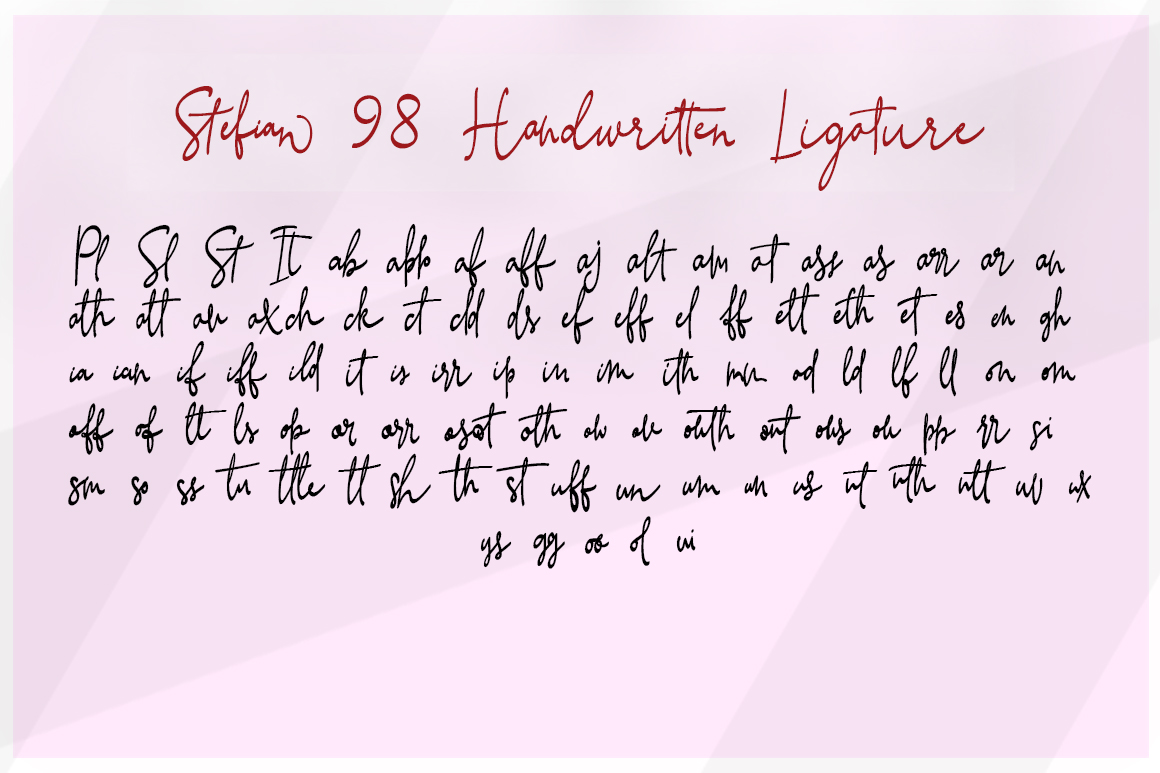 Stefian 98 Handwritten Ligature
Pl Sl St It ab abb af aff aj alt am at ass as arr ar an
ath att av ax ch ck ct dd ds ef eff el ff ett eth et es en gh
ia ian if iff ild it is irr ip in im ith mn od ld lf ll on om
off of lt ls op or orr os ot oth ow ov outh out ous ou pp rr si
sm so ss tu ttle tt sh th st uff un um us ut uth utt uv ux
ys gg oo ol ui